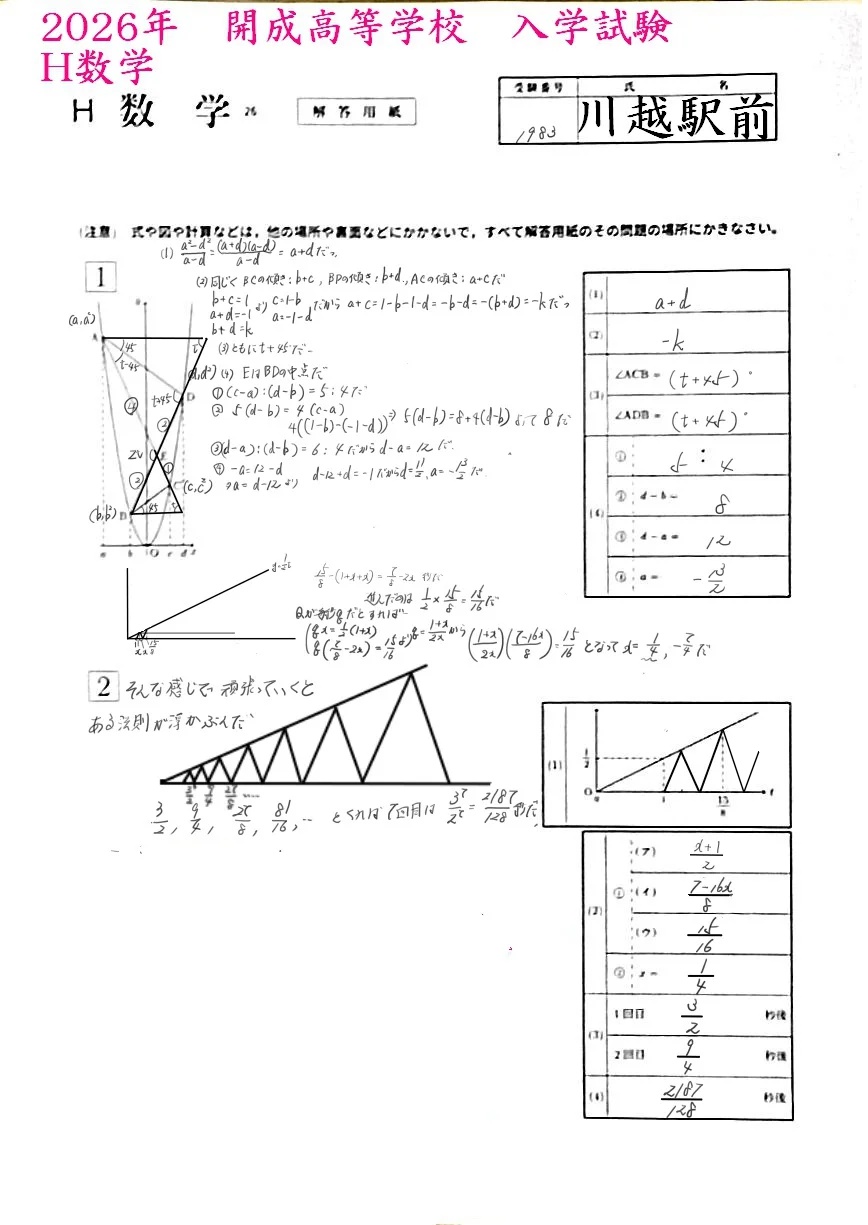 2026年 開成高等学校 入学試験
H数学
H 数 学 26 解答用紙
受験番号 氏 名
1983 川越駅前
(注意) 式や図や計算などは,他の場所や裏面などにかかないで,すべて解答用紙のその問題の場所にかきなさい。
1
(1) a²-d²/a-d = (a+d)(a-d)/a-d = a+dだっ
(2)同じく BCの傾き:b+c, BDの傾き:b+d, ACの傾き:a+cだ
b+c=1
a+d=-1
b+d=k
より c=1-b
a=-1-d
だから a+c=1-b-1-d=-b-d=-(b+d)=-kだっ
(3)ともにt+45だ
(4) EはBDの中点だ
① (c-a):(d-b)=5:4だ
② 5(d-b)=4(c-a)
4((1-b)-(-1-d)) ⇒ 5(d-b)=8+4(d-b) よって 8だ
③(d-a):(d-b)=6:4だからd-a=12だ
④ -a=12-d
a=d-12より d-12+d=-1だからd=11/2, a=-13/2だ
(a,a²)
A
45
t-45
t
(d,d²)
D
t+45
④
②
E
①
②
(c,c²)
(b,b²)
B
45
a b O c d
(1) a+d
(2) -k
(3) ∠ACB= (t+45)°
∠ADB= (t+45)°
(4) ① 5:4
② d-b= 8
③ d-a= 12
④ a= -13/2
15/8-(1+x+x)=7/8-2x 秒だ
進んだのは 1/2×15/8=15/16だ
Qが毎秒qだとすれば
qx=1/2(1+x)
q(7/8-2x)=15/16より
q=1+x/2xから (1+x/2x)(7-16x/8)=15/16 となって x=1/4, -7/4だ
2
そんな感じで頑張っていくと
ある法則が浮かぶんだ
3/2 9/4 27/8 ……
3/2, 9/4, 27/8, 81/16, … とくれば7回目は 3⁷/2⁷=2187/128秒だ
(1) 1/2 O 1 15/8 t
(2) ① (ア) x+1/2
(イ) 7-16x/8
(ウ) 15/16
② x= 1/4
(3) 1回目 3/2 秒後
2回目 9/4 秒後
(4) 2187/128 秒後